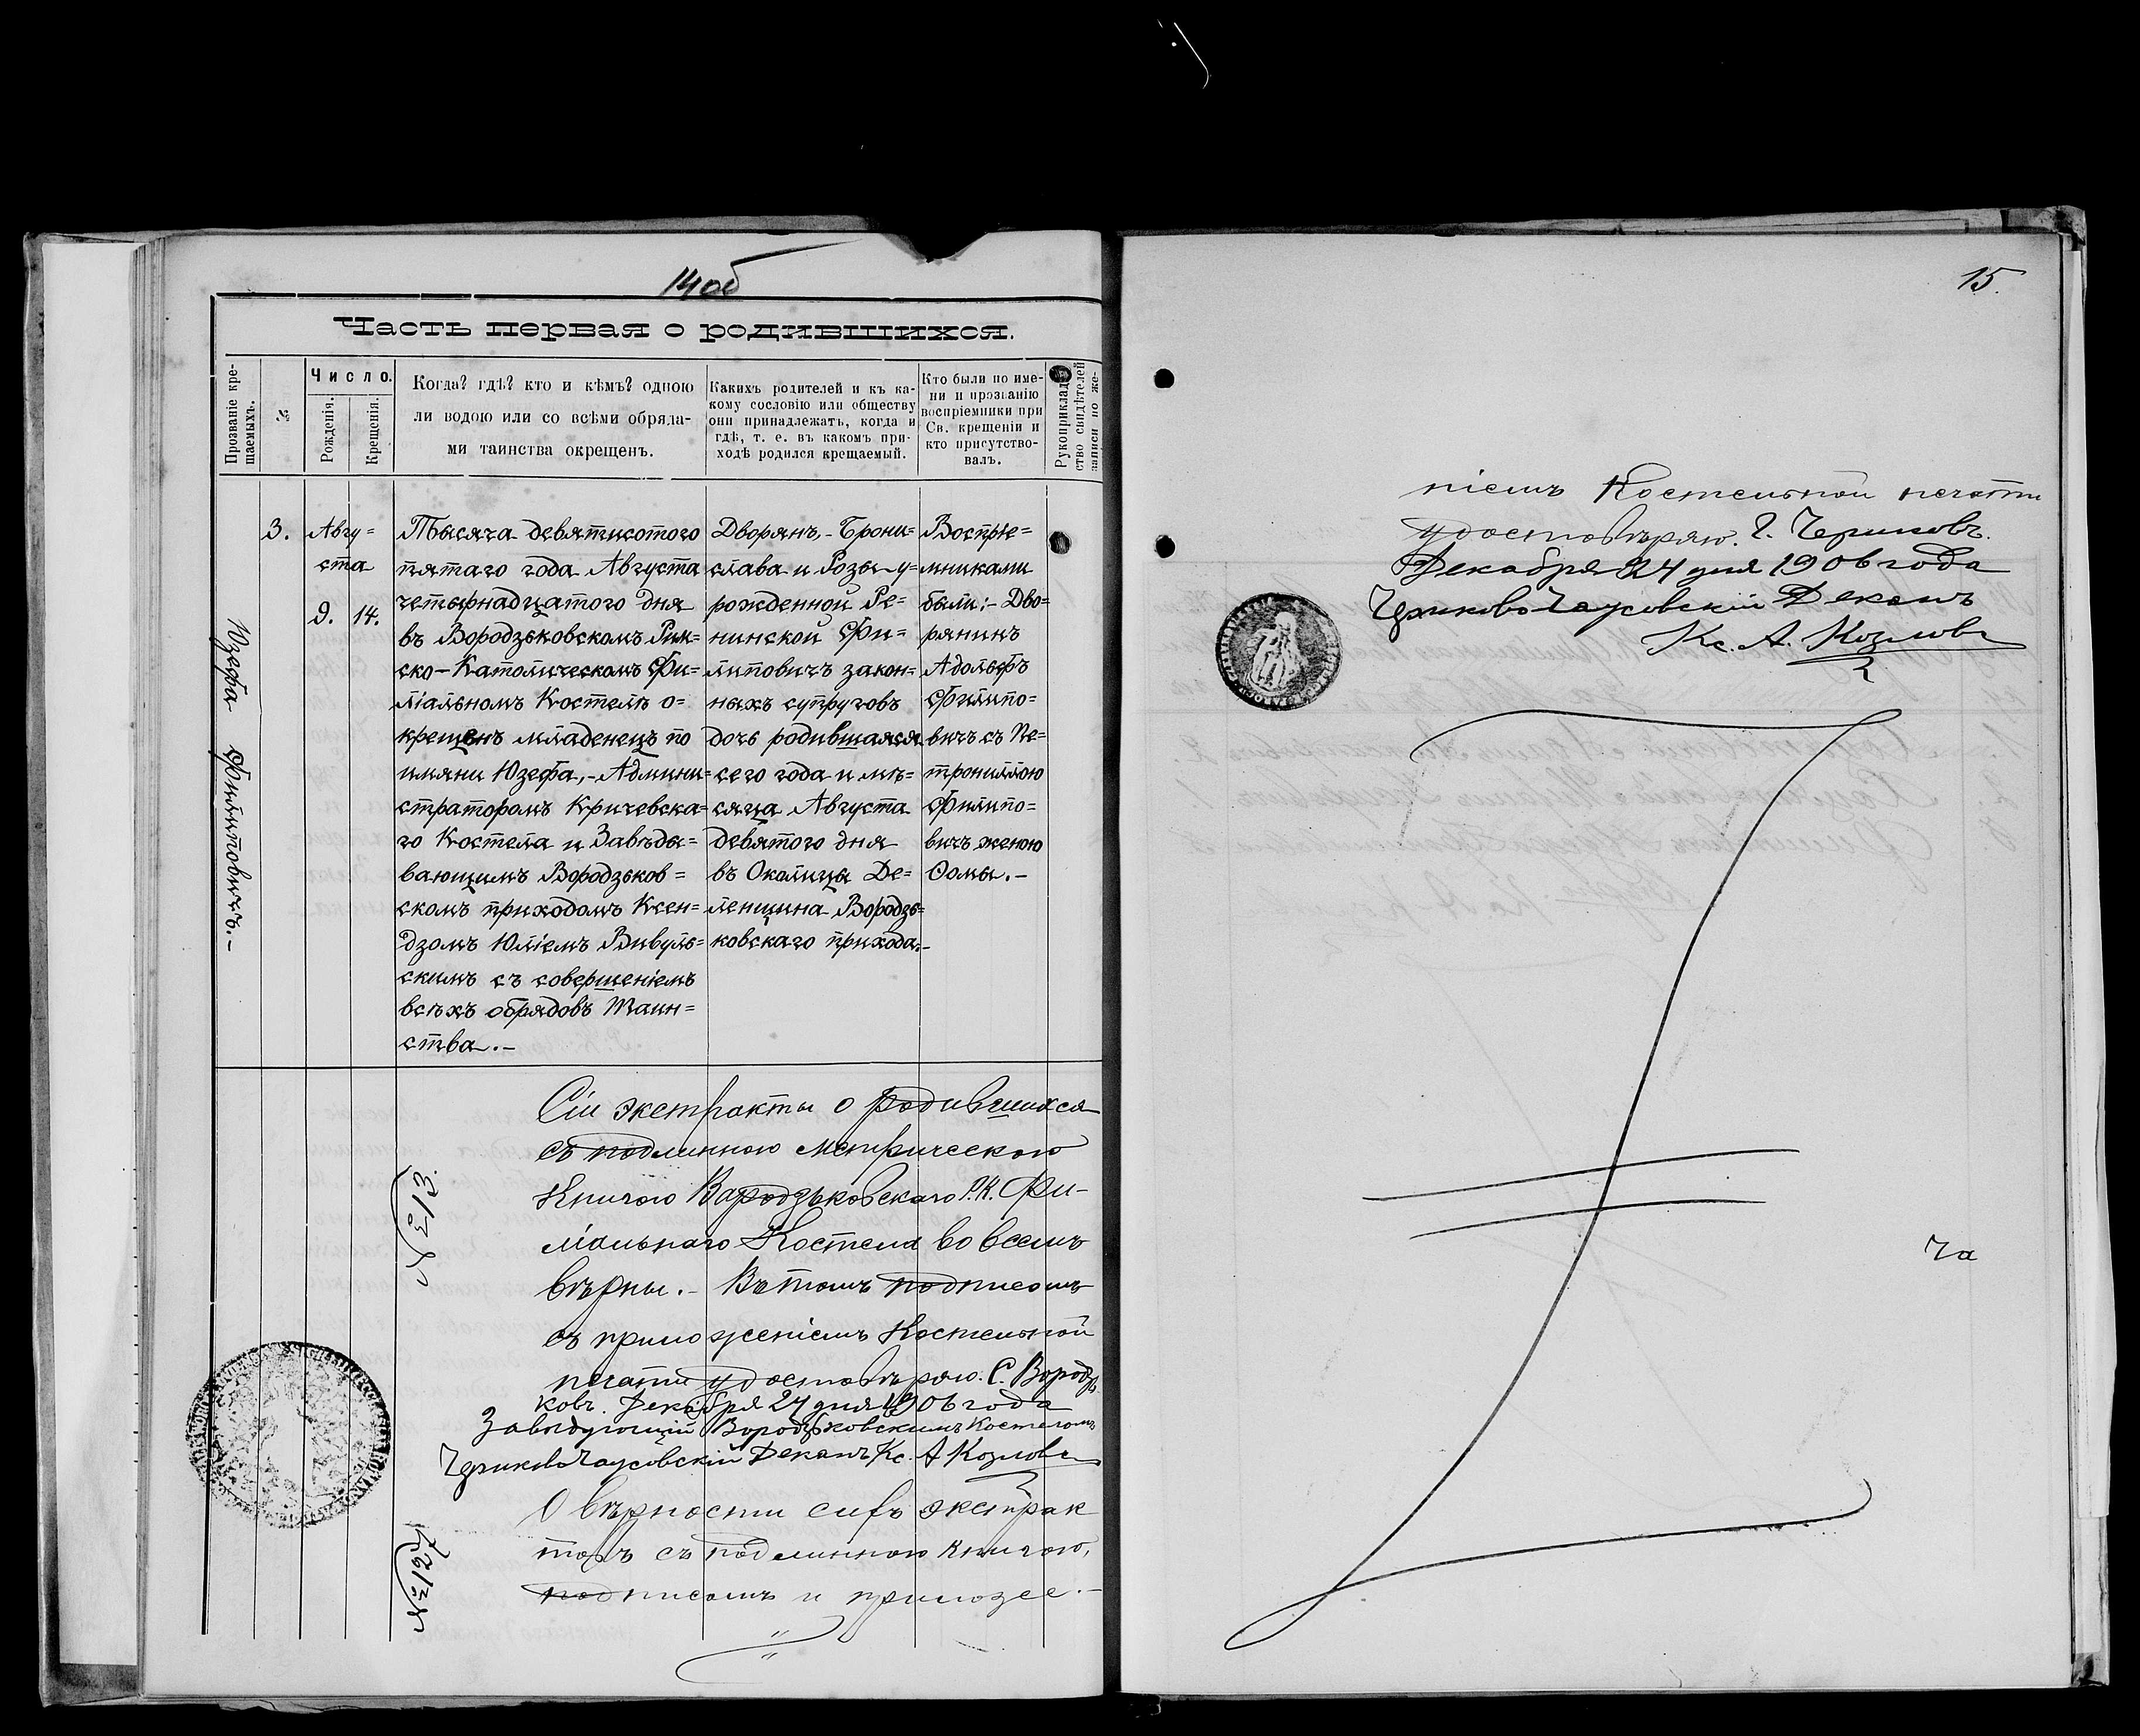 14 об
Часть первая о родившихся.
Прозваніе кре-
щаемыхъ.
№
Число.
Рожденія.
Крещенія.
Когда? гдѣ? кто и кѣмъ? одною
ли водою или со всѣми обряда-
ми таинства окрещенъ.
Какихъ родителей и къ ка-
кому сословію или обществу
они принадлежатъ, когда и
гдѣ, т. е. въ какомъ при-
ходѣ родился крещаемый.
Кто были по име-
ни и прозванію
воспріемники при
Св. крещеніи и
кто присутство-
валъ.
Рукоприклад
ство свидѣтелей
записи по же-
Юзефа Филиповичъ.-
3.
Авгу=
ста
9. 14.
Тысяча девятисотого
пятаго года Августа
четырнадцатого дня
въ Вородзьковскомъ Рим=
ско-Католическомъ Фи=
ліальномъ Костелѣ о=
крещенъ младенецъ по
имяни Юзефа,-Админи=
страторомъ Кричевска=
го Костела и Завѣды=
вающимъ Вородзьков=
скомъ приходомъ Ксен=
дзомъ Юліемъ Вивуль=
скимъ съ совершеніемъ
всѣхъ обрядовъ Таин=
ства.-
Дворянъ,-Брони=
слава и Розы у=
рожденной Ре=
нинской Фи=
липовичъ закон=
ныхъ супруговъ
дочь родившаяся
сего года и мѣ=
сяца Августа
девятого дня
въ Околицы Де=
ленщина Вородзь=
ковскаго прихода.-
Воспріе=
мниками
были:-Дво=
рянинъ
Адольфъ
Филипо=
вичъ съ Пе=
трониллою
Филипо=
вичъ женою
Ѳомы.-
Сіи экстракты о родившихся
съ подлинною метрическою
Книгою Вародзьковскаго Р.К. Фи-
ліальнаго Костела во всемъ
вѣрны.- Въ томъ подписомъ
съ приложеніемъ Костельной
печати удостовѣряю. С. Вородзь
ковъ. Декабря 24 дня 1906 года
Завѣдующій Вородзьковскимъ Костеломъ
Чериково Чаусовскій Деканъ Кс. А Козловъ
№ 313.
О вѣрности сихъ экстрак
товъ съ подлинною Книгою,
подписомъ и приложе.-
№ 1217
15.
ніемъ Костельной печати
удостовѣряю. Г. Чериковъ.
Декабря 24 дня 1906 года
Чериково Чаусовскій Деканъ
Кс. А. Козловъ
Ча